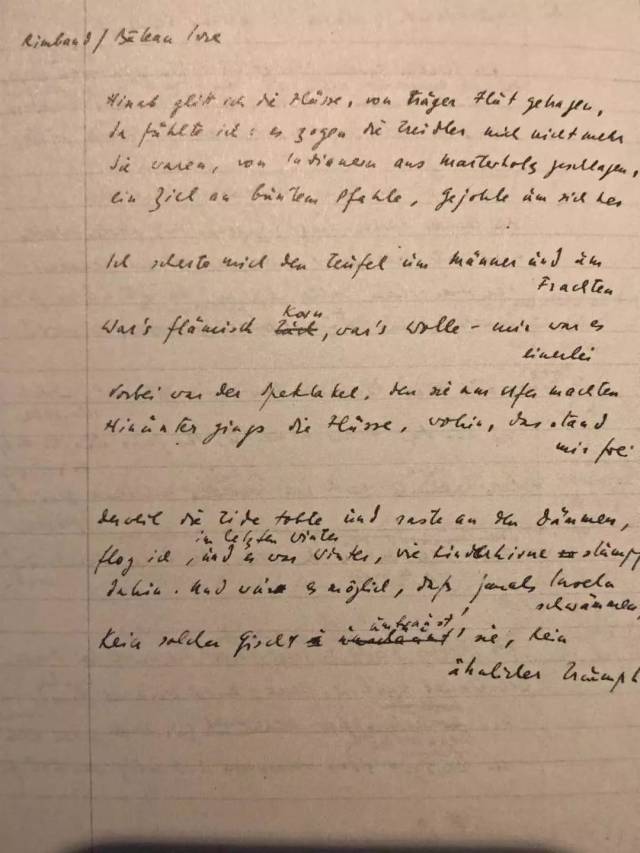 Rimbaud / Bateau Ivre
Hinab glitt ich die Flüsse, von träger Flut getragen,
da fühlte ich: es zogen die Treidler mich nicht mehr
Sie waren, von Indianern ans Marterholz geschlagen,
ein Ziel an buntem Pfahle, Gejohle um sich her
Ich scherte mich den Teufel um Männer und um
Frachten
Korn
War's flämisch , war's Wolle – mir war es
einerlei
Vorbei war der Spektakel, den sie am Ufer machten
Hinunter gings die Flüsse, wohin, das stand
mir frei
derweil die Tide tobte und raste an den Dämmen,
im letzten Winter
flog ich, und es war Winter, wie Kinderhirne stumpf
dahin. Und wär es möglich, daß jemals Inseln
schwämmen,
umtost
Kein solcher Gischt , sie, kein
ähnlicher Triumph